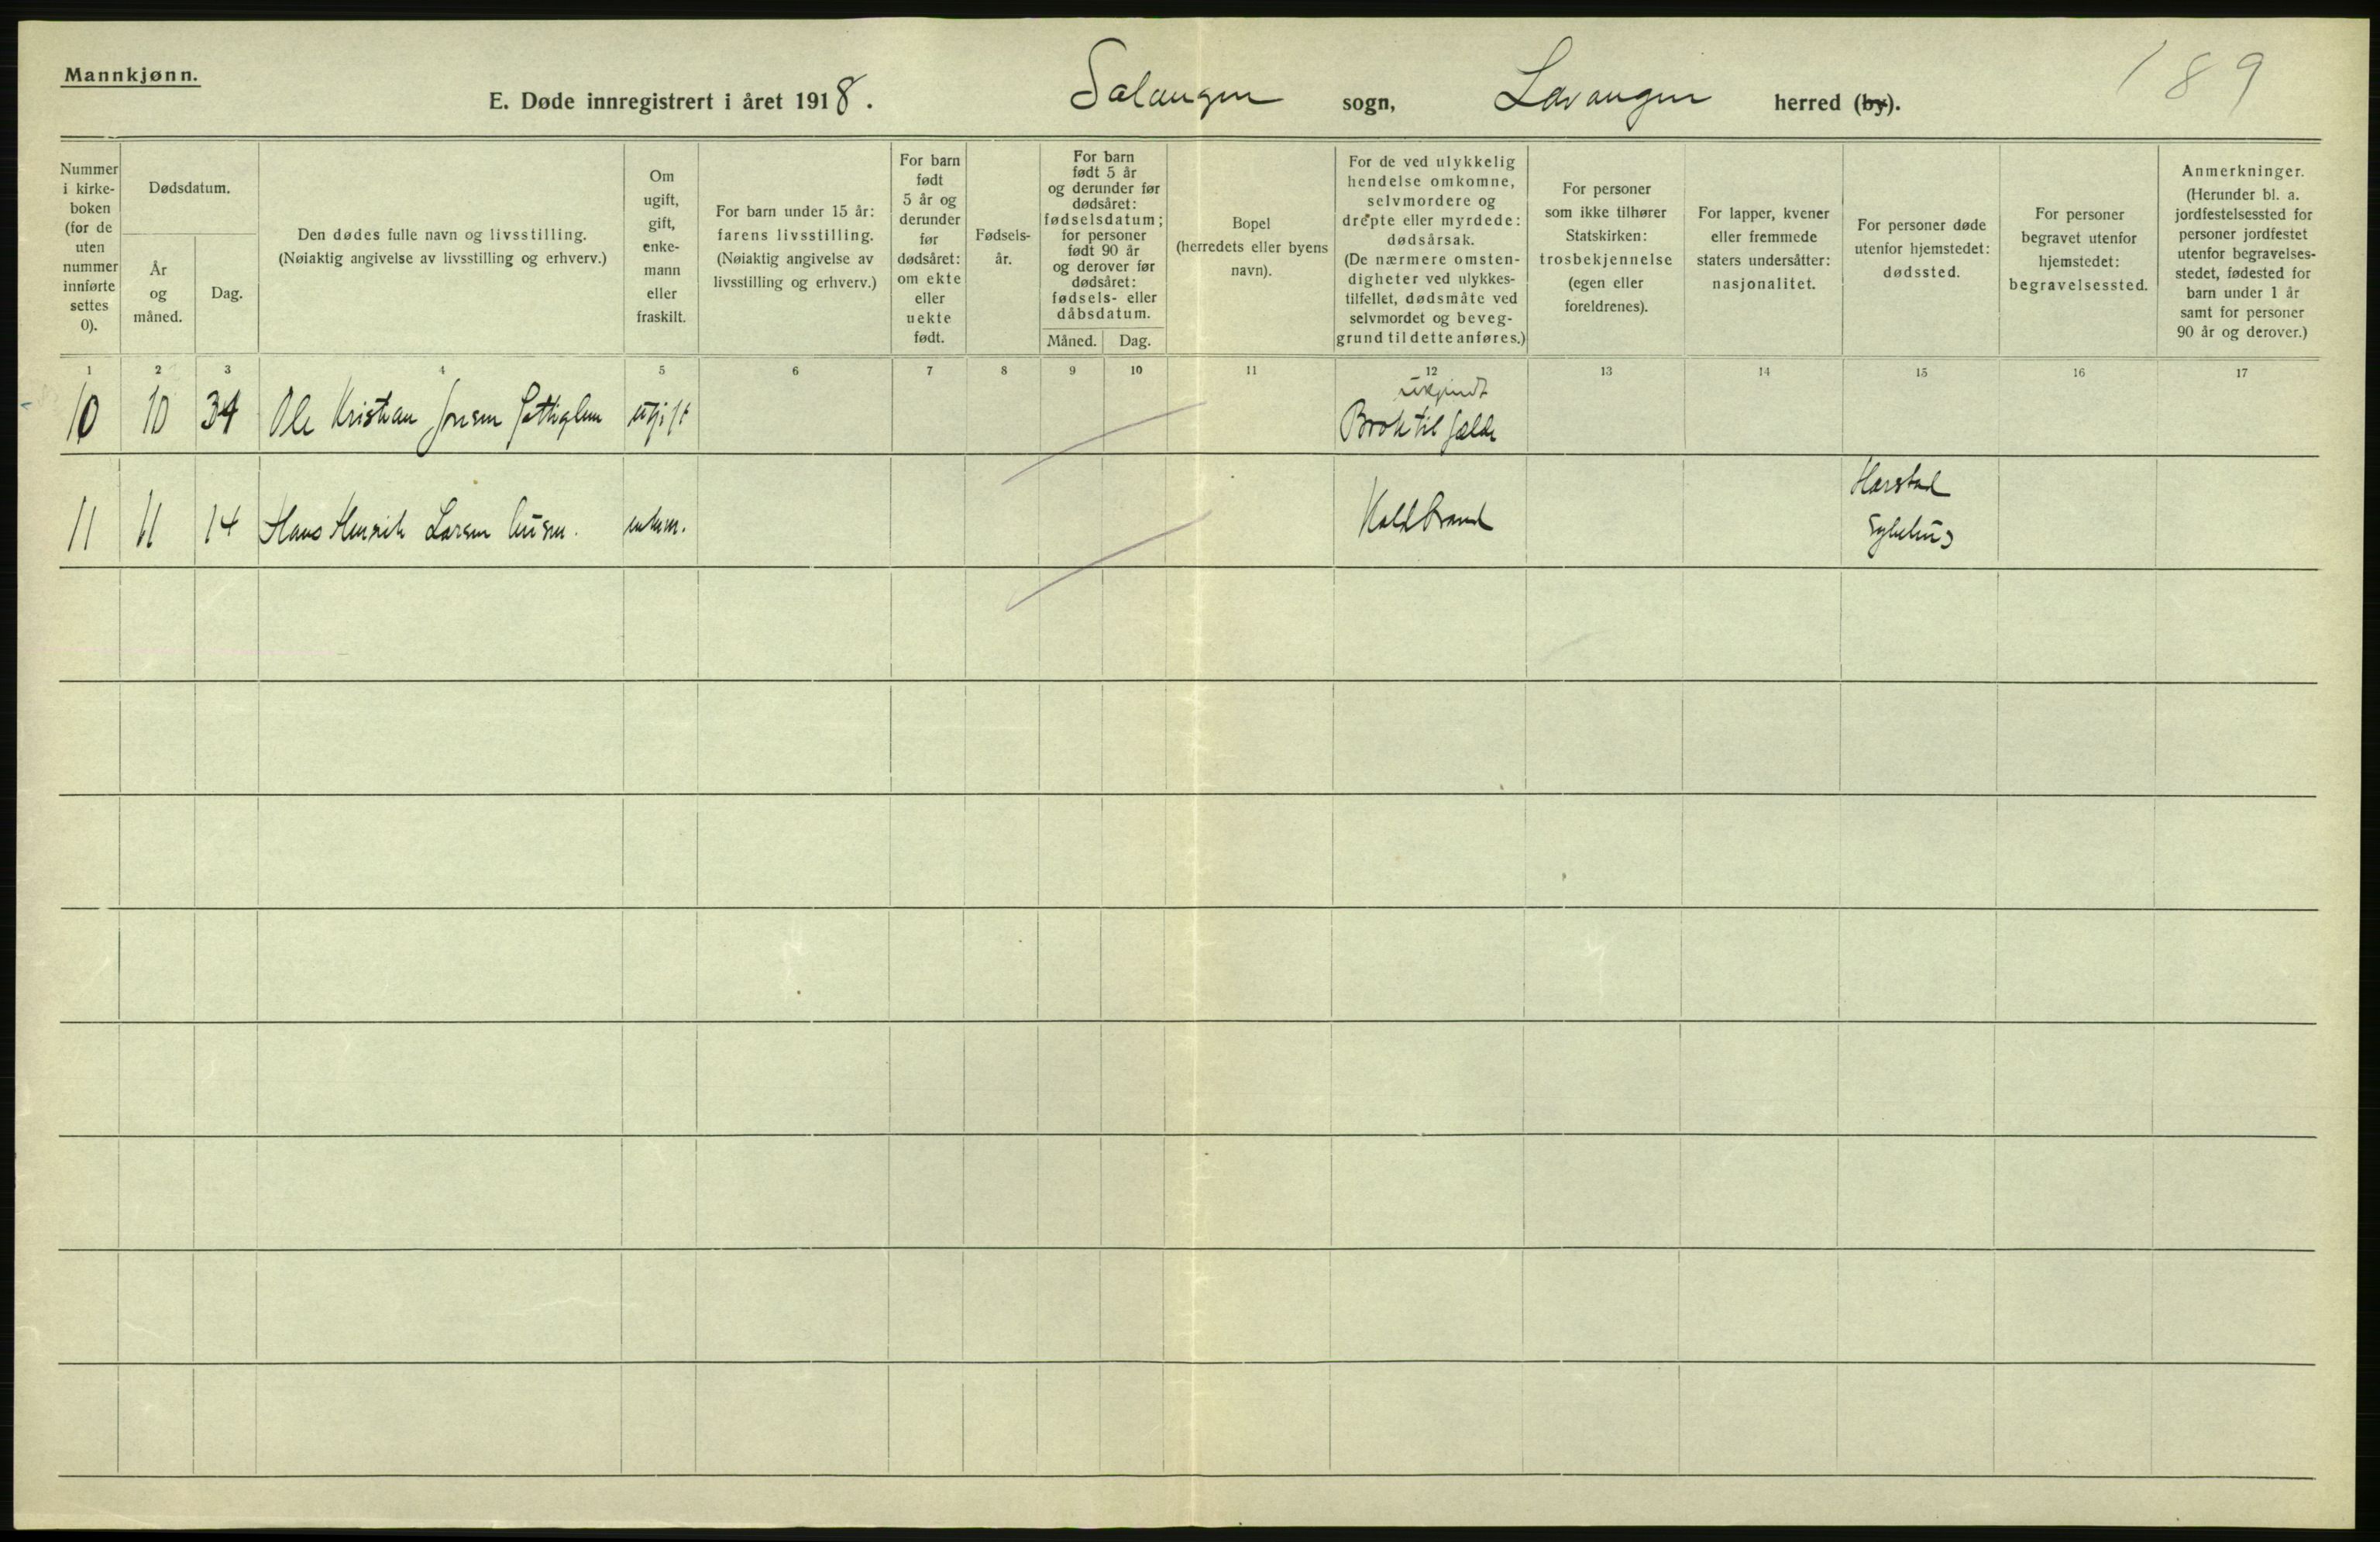 Mannkjønn.
189
E. Døde innregistrert i året 1918. Salangen sogn, Lavangen herred (by).
Nummer
i kirke-
boken
(for de
uten
nummer
innførte
settes
0).
Dødsdatum.
År
og
måned.
Dag.
Den dødes fulle navn og livsstilling.
(Nøiaktig angivelse av livsstilling og erhverv.)
Om
ugift,
gift,
enke-
mann
eller
fraskilt.
For barn under 15 år:
farens livsstilling.
(Nøiaktig angivelse av
livsstilling og erhverv.)
For barn
født
5 år og
derunder
før
dødsåret:
om ekte
eller
uekte
født.
Fødsels-
år.
For barn
født 5 år
og derunder før
dødsåret:
fødselsdatum;
for personer
født 90 år
og derover før
dødsåret:
fødsels- eller
dåbsdatum.
Måned. Dag.
Bopel
(herredets eller byens
navn).
For de ved ulykkelig
hendelse omkomne,
selvmordere og
drepte eller myrdede:
dødsårsak.
(De nærmere omsten-
digheter ved ulykkes-
tilfellet, dødsmåte ved
selvmordet og beveg-
grund til dette anføres.)
For personer
som ikke tilhører
Statskirken:
trosbekjennelse
(egen eller
foreldrenes).
For lapper, kvener
eller fremmede
staters undersåtter:
nasjonalitet.
For personer døde
utenfor hjemstedet:
dødssted.
For personer
begravet utenfor
hjemstedet:
begravelsessted.
Anmerkninger.
(Herunder bl. a.
jordfestelsessted for
personer jordfestet
utenfor begravelses-
stedet, fødested for
barn under 1 år
samt for personer
90 år og derover.)
1 2 3 4 5 6 7 8 9 10 11 12 13 14 15 16 17
ukjendt
10 10 Ole Kristian Jensen ugift Brok til
11 11 14 Hans Henrik Larsen enkem. Koldbrand Harstad
Sykehus